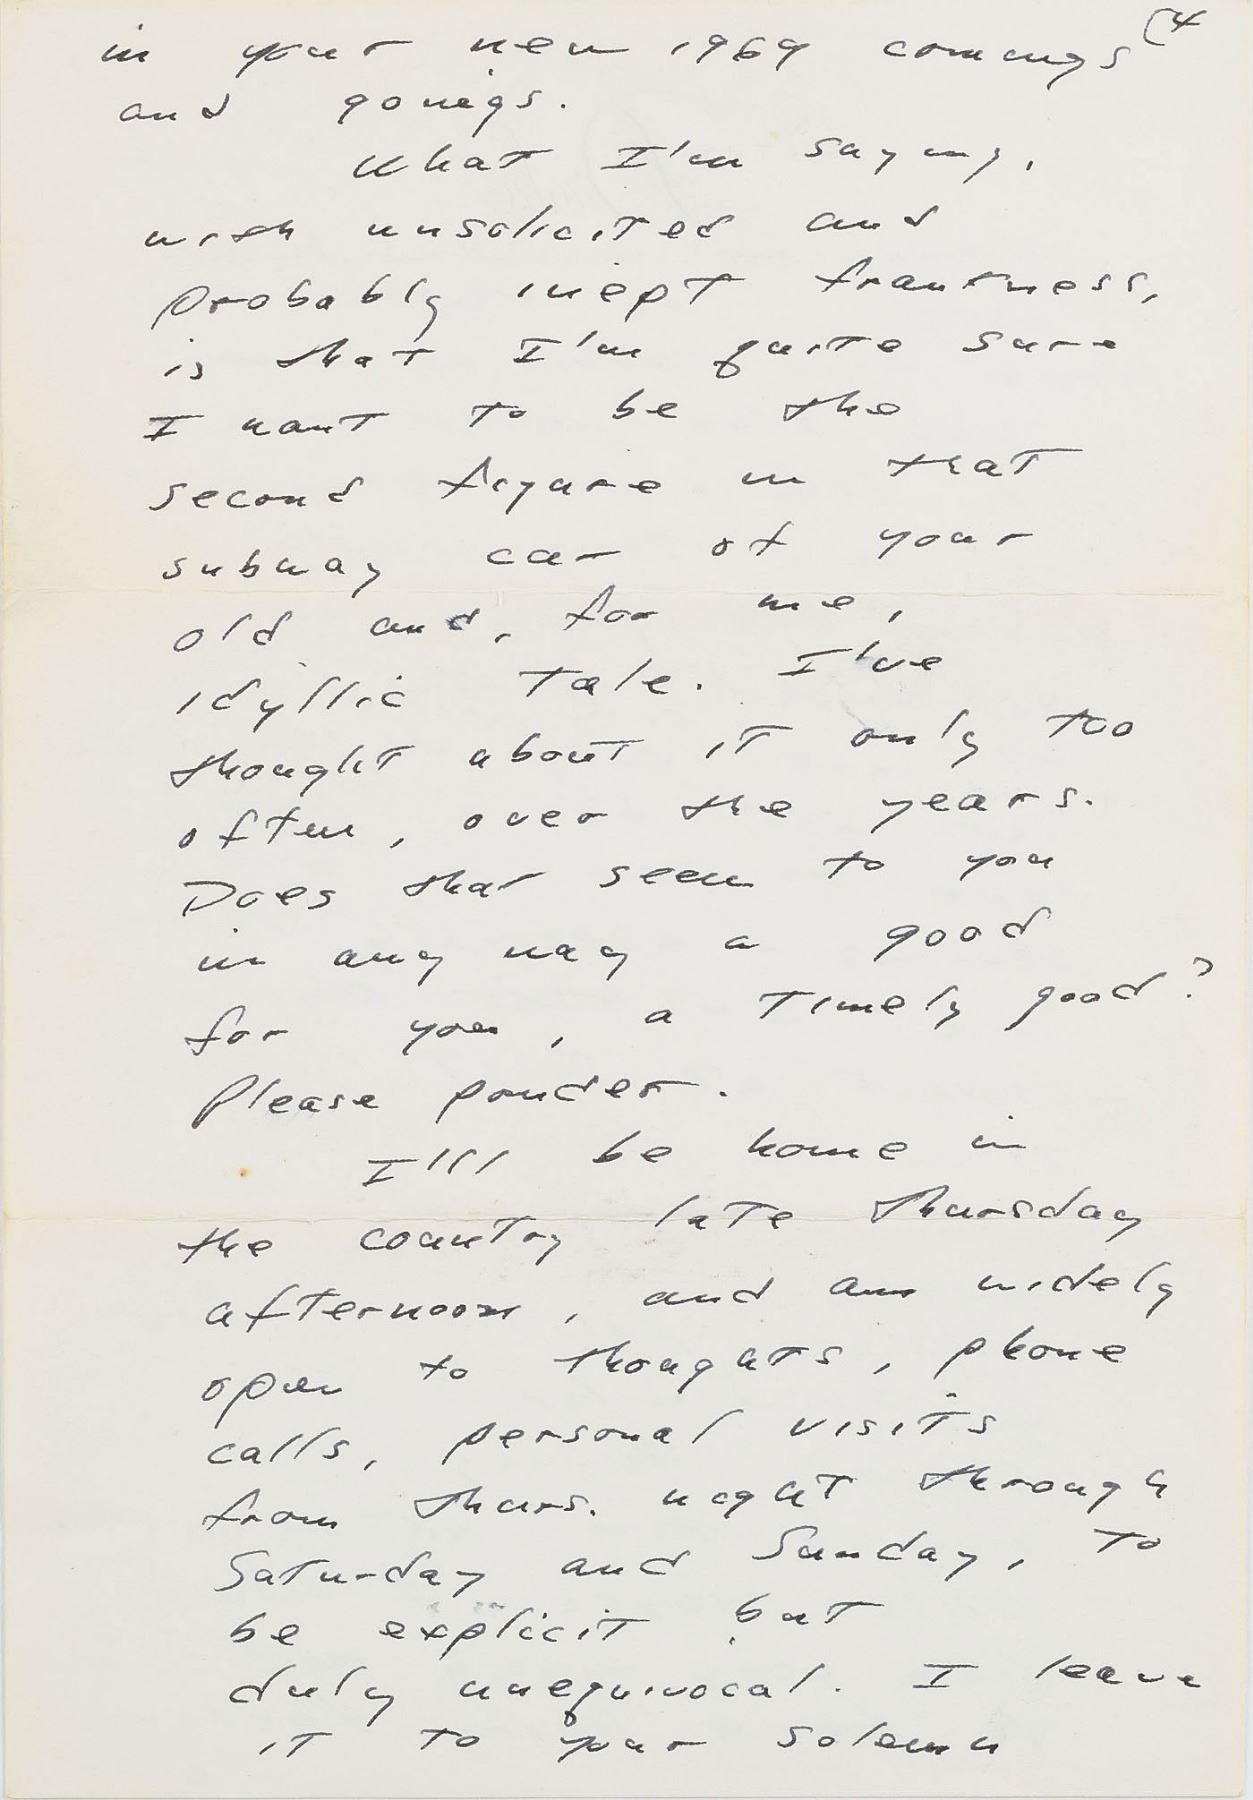 (4
in your new 1969 comings
and goings.
What I'm saying,
with unsolicited and
probably inept frankness,
is that I'm quite sure
I want to be the
second figure in that
subway car of your
old and, for me,
idyllic tale. I've
thought about it only too
often, over the years.
Does that seem to you
in any way a good
for you, a timely good?
Please ponder.
I'll be home in
the country late Thursday
afternoon, and am widely
open to thoughts, phone
calls, personal visits
from Thurs. night through
Saturday and Sunday, to
be explicit but
duly unequivocal. I leave
it to your solemn